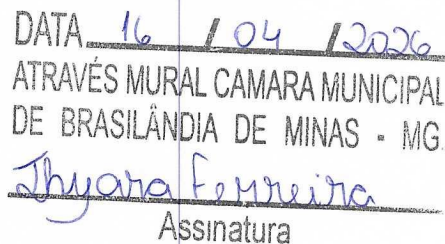 DATA 16 / 04 / 2026
ATRAVÉS MURAL CAMARA MUNICIPAL
DE BRASILÂNDIA DE MINAS - MG.
Thyara Ferreira
Assinatura